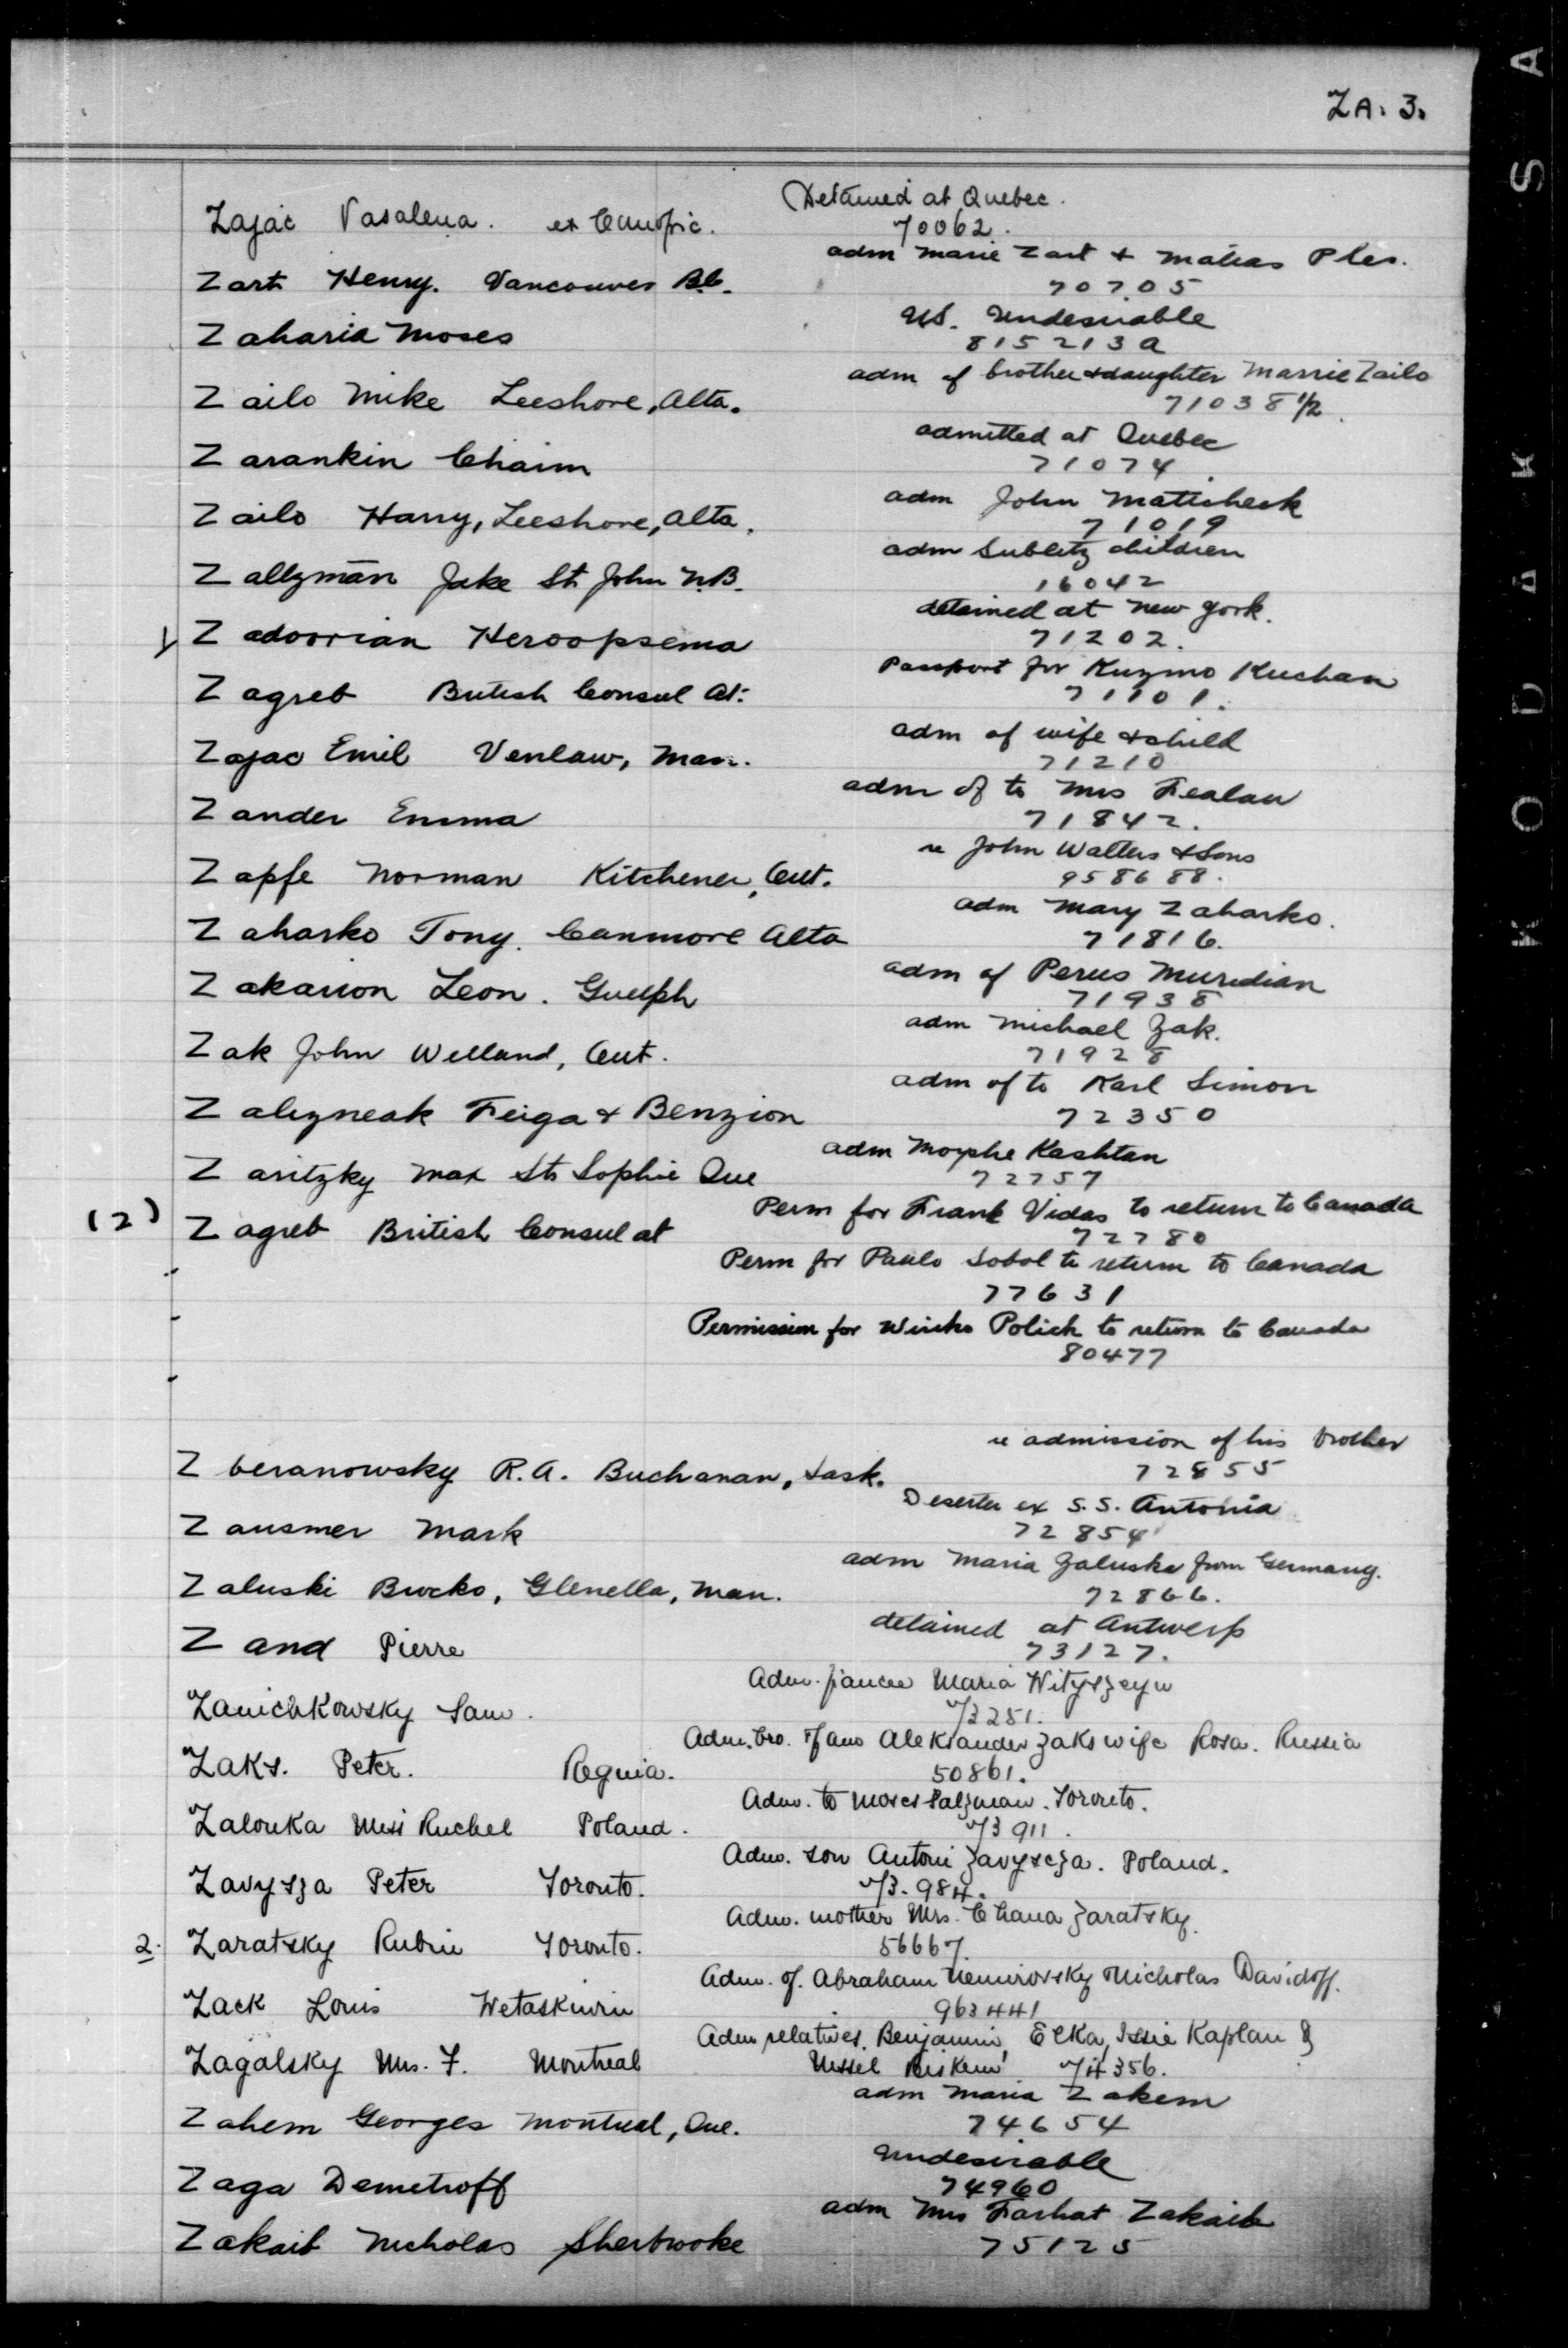 ZA. 3.
Detained at Quebec.
Zajac Vasalena. ex
70062.
adm Marie Zart & Matias Ples.
Zart Henry. Vancouver B.C.
70705
U.S. Undesirable
Zaharia Moses
815213 a
adm of brother & daughter Marrie Zailo
Zailo Mike Leeshore, Alta.
71038 1/2
admitted at Quebec
Zarankin Chaim
71074
adm John Matticheck
Zailo Harry, Leeshore, Alta.
71019
adm Sublitz children
Zallzman Jake St John N.B.
16042
detained at New York.
Zadoorian Heroopsema
71202.
Passport for Kuzmo Kuchan
Zagreb British Consul At:
71101.
adm of wife & child
Zajac Emil Venlaw, Man.
71210
adm of to Mrs Fealan
Zander Emma
71842.
re John Walters & Sons
Zapfe Norman Kitchener, Ont.
958688.
adm Mary Zaharko.
Zaharko Tony. Canmore Alta
71816.
adm of Perus Muredian
Zakarion Leon. Guelph
71938
adm Michael Zak.
Zak John Welland, Ont.
71928
adm of to Karl Simon
Zalizneak Feiga & Benzion
72350
adm Moyshe Kashtan
Zaritzky Max St Sophie Que
72757
Perm for Frank Vidas to return to Canada
(2) Zagreb British Consul at
72780
Perm for Paulo Sobol to return to Canada
77631
Permission for Winko Polich to return to Canada
80477
re admission of his brother
Zberanowsky R.A. Buchanan, Sask.
72855
Deserter ex S.S. Antonia
Zausmer Mark
72854
adm Maria Zaluska from Germany.
Zaluski Bucko, Glenella, Man.
72866.
detained at Antwerp
Zand Pierre
73127.
Adm. fiancee Maria
Zanichkowsky Sam.
73251.
Adm. bro. & fam Aleksander Zaks wife Rosa. Russia
Zaks. Peter. Regina.
50861.
Adm. to Moses Salzman. Toronto.
Zalouka Miss Ruchel Poland.
73911.
Adm. son Antoni Zavyscza. Poland.
Zavysza Peter Toronto.
73.984.
Adm. mother Mrs. Chana Zaratsky.
2. Zaratsky Rubin Toronto.
56667.
Adm. of. Abraham Nemirovsky Nicholas Davidoff.
Zack Louis Wetaskiwin
963441
Adm relatives. Benjamin, Elka, Issie Kaplan &
Zagalsky Mrs. F. Montreal
Nissel 74356.
adm Maria Zakem
Zahem Georges Montreal, Que.
74654
Undesirable
Zaga Demetroff
74960
adm Mrs Farhat Zakaib
Zakaib Nicholas Sherbrooke
75125
KODAK SA